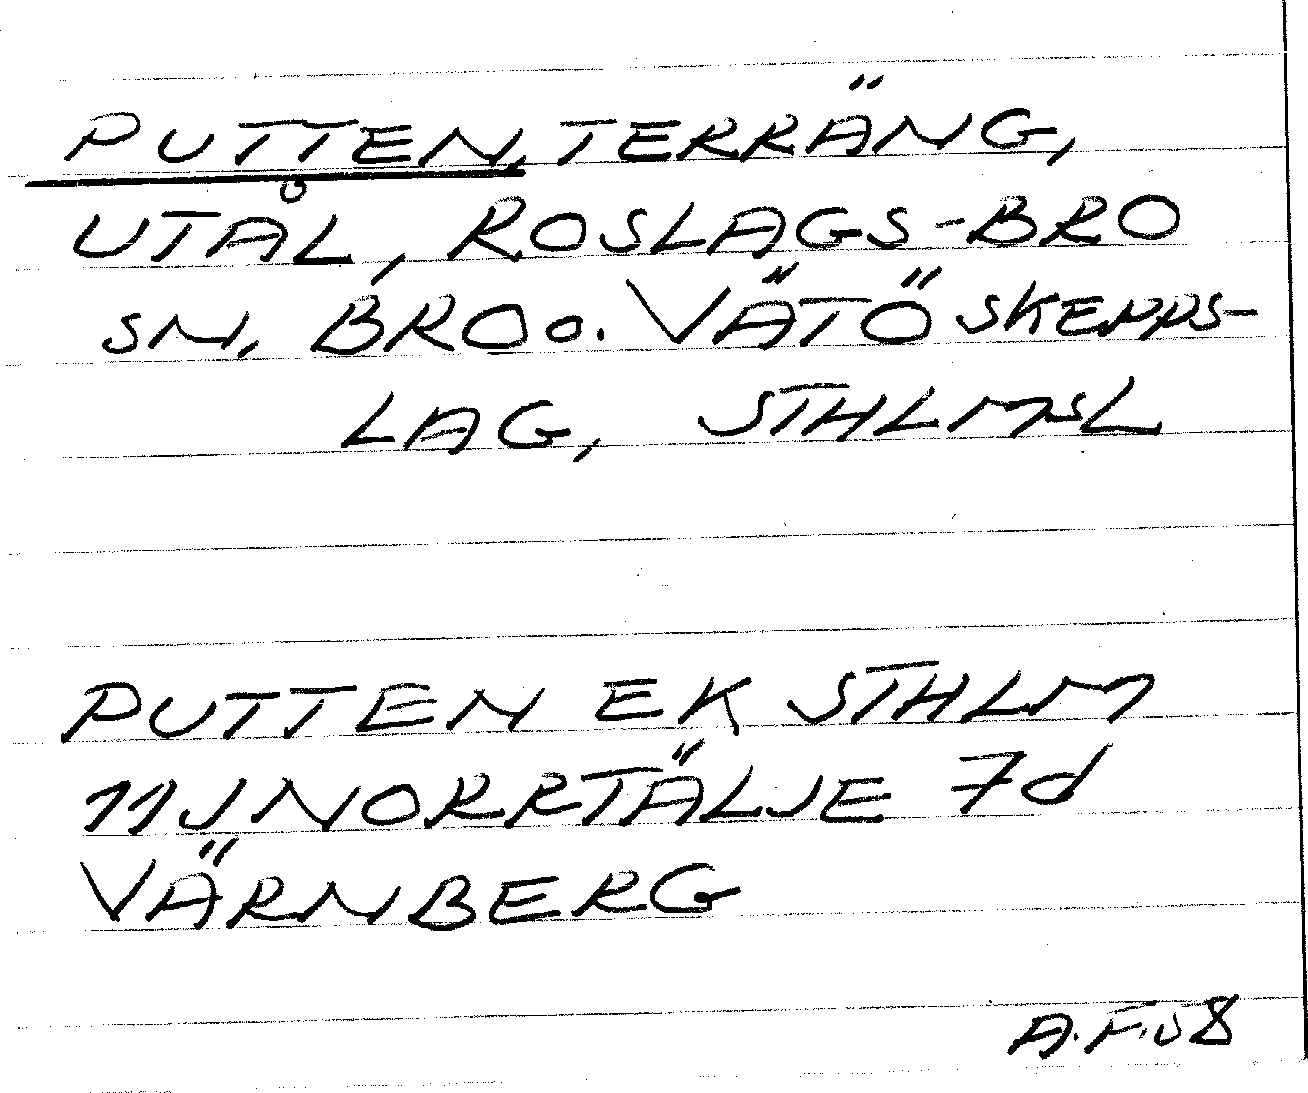 PUTTEN, TERRÄNG,
UTÅL, ROSLAGS-BRO
SN, BRO o. VÄTÖ SKEPPS-
LAG, STHLMSL
PUTTEN EK STHLM
11J NORRTÄLJE 7d
VÄRNBERG